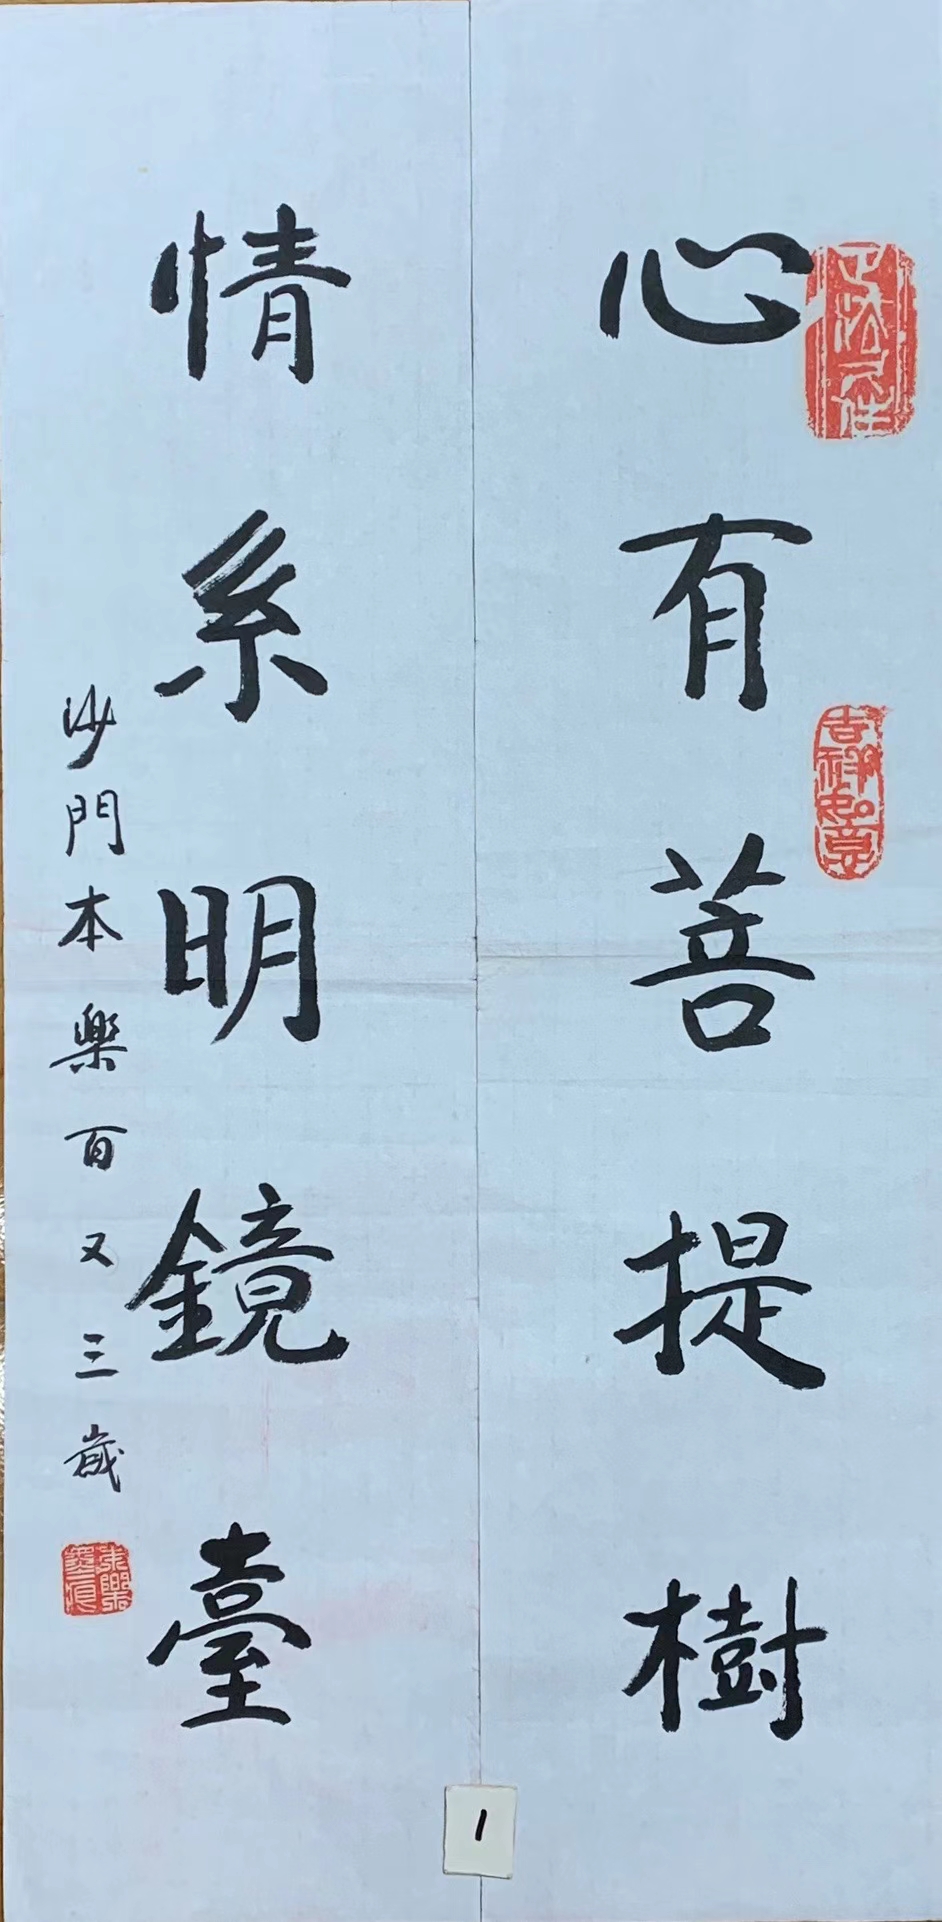 心有菩提樹
吉祥如意
情系明鏡臺
沙門本樂百又三歲
1